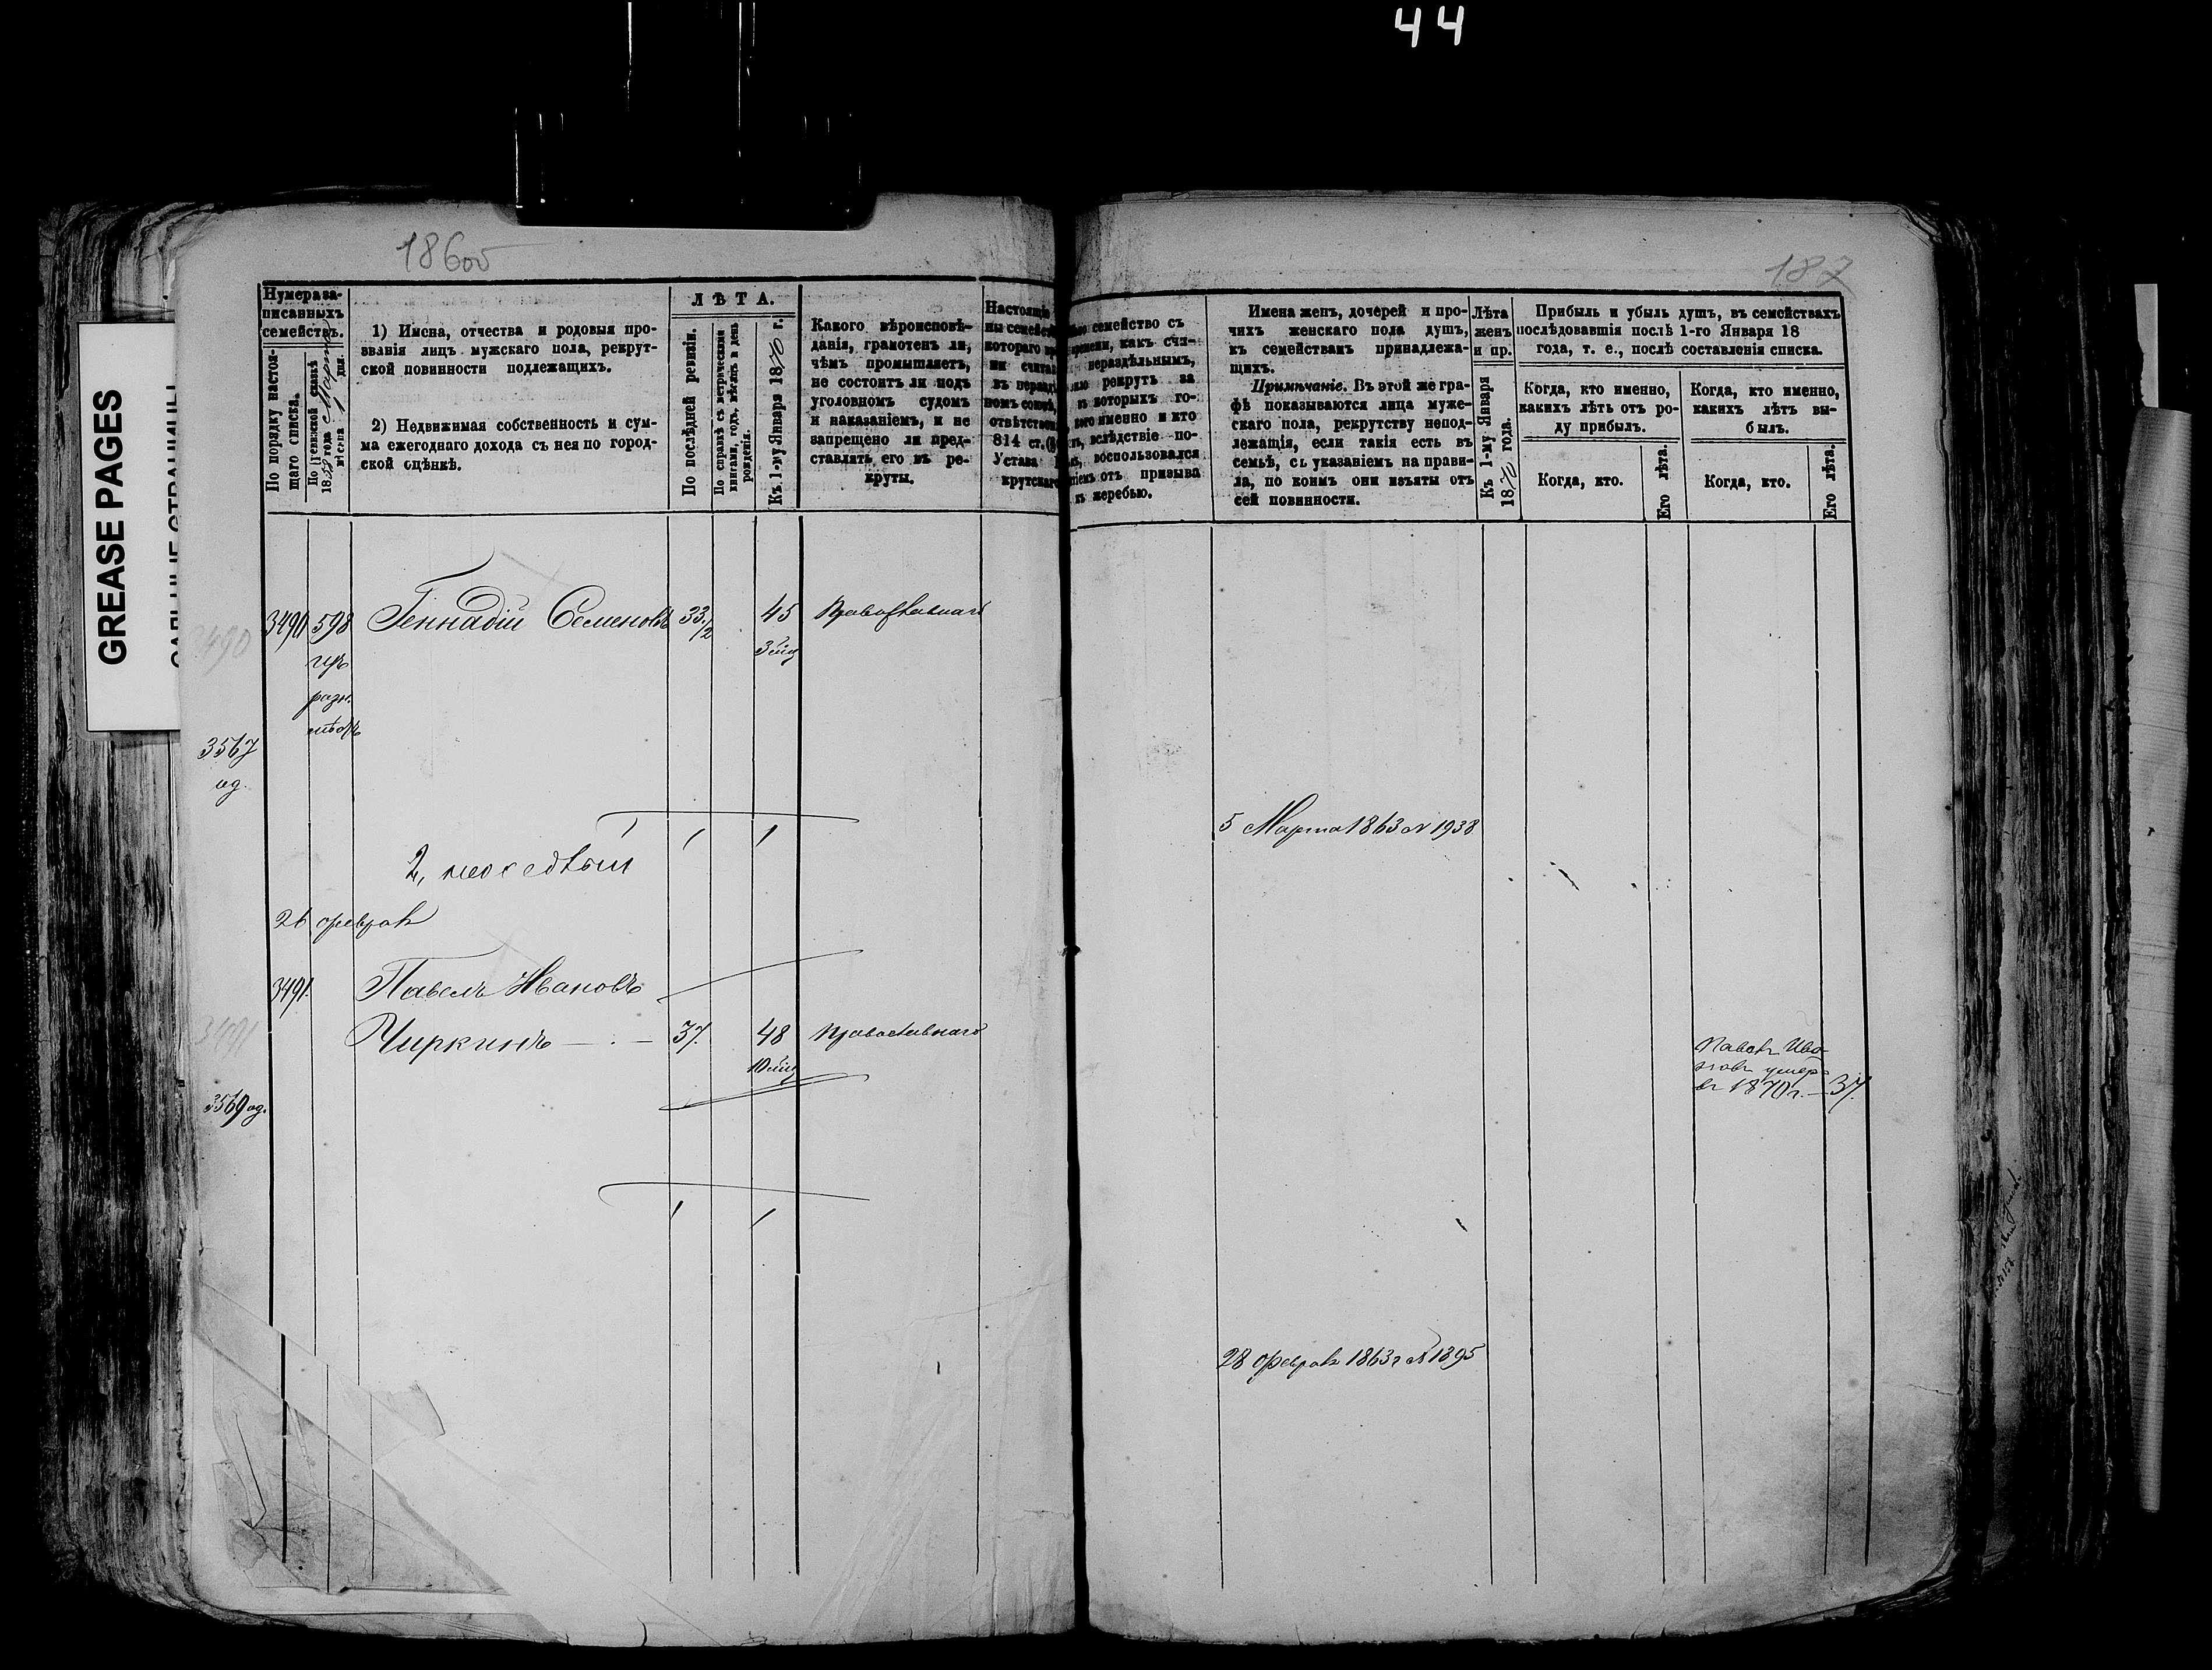 44
GREASE PAGES
186об
187
Нумера за-
писанныхъ
семействъ.
По порядку настоя-
щаго списка.
По ревижской сказкѣ
1858 года Марта
мѣсяца 1 дня.
1) Имена, отчества и родовыя про-
званія лицъ мужскаго пола, рекрут-
ской повинности подлежащихъ.
2) Недвижимая собственность и сум-
ма ежегоднаго дохода съ нея по город-
ской оцѣнкѣ.
ЛѢТА.
По послѣдней ревизіи.
По справкѣ съ метрическими
книгами, годъ, мѣсяцъ и день
рожденія.
Къ 1-му Января 1870 г.
Какого вѣроисповѣ-
данія, грамотенъ ли,
чѣмъ промышляетъ,
не состоитъ ли подъ
уголовномъ судомъ
и наказаніемъ, и не
запрещено ли пред-
ставлять его въ ре-
круты.
Настоящіе
ны семейст
котораго
ни счита
въ нераз
номъ союз
отвѣтствен
814 ст.
Устава
крутскаго
семейство съ
времени, какъ счи-
нераздѣльнымъ,
рекрутъ за
которыхъ го-
именно и кто
вслѣдствіе по-
воспользовался
отъ призыва
къ жеребью.
Имена женъ, дочерей и про-
чихъ женскаго пола душъ,
къ семействамъ принадлежа-
щихъ.
Примѣчаніе. Въ этой же гра-
фѣ показываются лица муже-
скаго пола, рекрутству непод-
лежащія, если такія есть въ
семьѣ, съ указаніемъ на прави-
ла, по коимъ они изъяты отъ
сей повинности.
Лѣта
женъ
и пр.
Къ 1-му Января
1870 года.
Прибыль и убыль душъ, въ семействахъ
послѣдовавшія послѣ 1-го Января 18
года, т. е., послѣ составленія списка.
Когда, кто именно,
какихъ лѣтъ отъ ро-
ду прибылъ.
Когда, кто именно,
какихъ лѣтъ вы-
былъ.
Когда, кто.
Его лѣта.
Когда, кто.
Его лѣта.
3490 598 Геннадій Семеновъ 33 1/2 45 Православнаго
3490
3567
од.
5 Марта 1863 № 1938
26 феврал
3491. Павелъ Ивановъ
Чиркинъ — . — 37. 48 Православнаго
3491
3569 од.
Павелъ Ива-
новъ умеръ
въ 1870 г. — 37.
28 феврал 1863 г № 1895